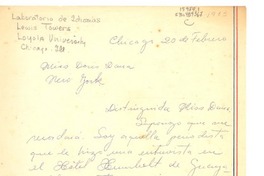 Laboratorio de Idiomas
Lewis Towers
Loyola University
Chicago. Ill
Chicago, 20 de Febrero
Miss Doris Dana
New York
Distinguida Miss Dana:
Supongo que me
recordará. Soy aquella periodista
que le hizo una entrevista en
el Hotel Humboldt de Guaya